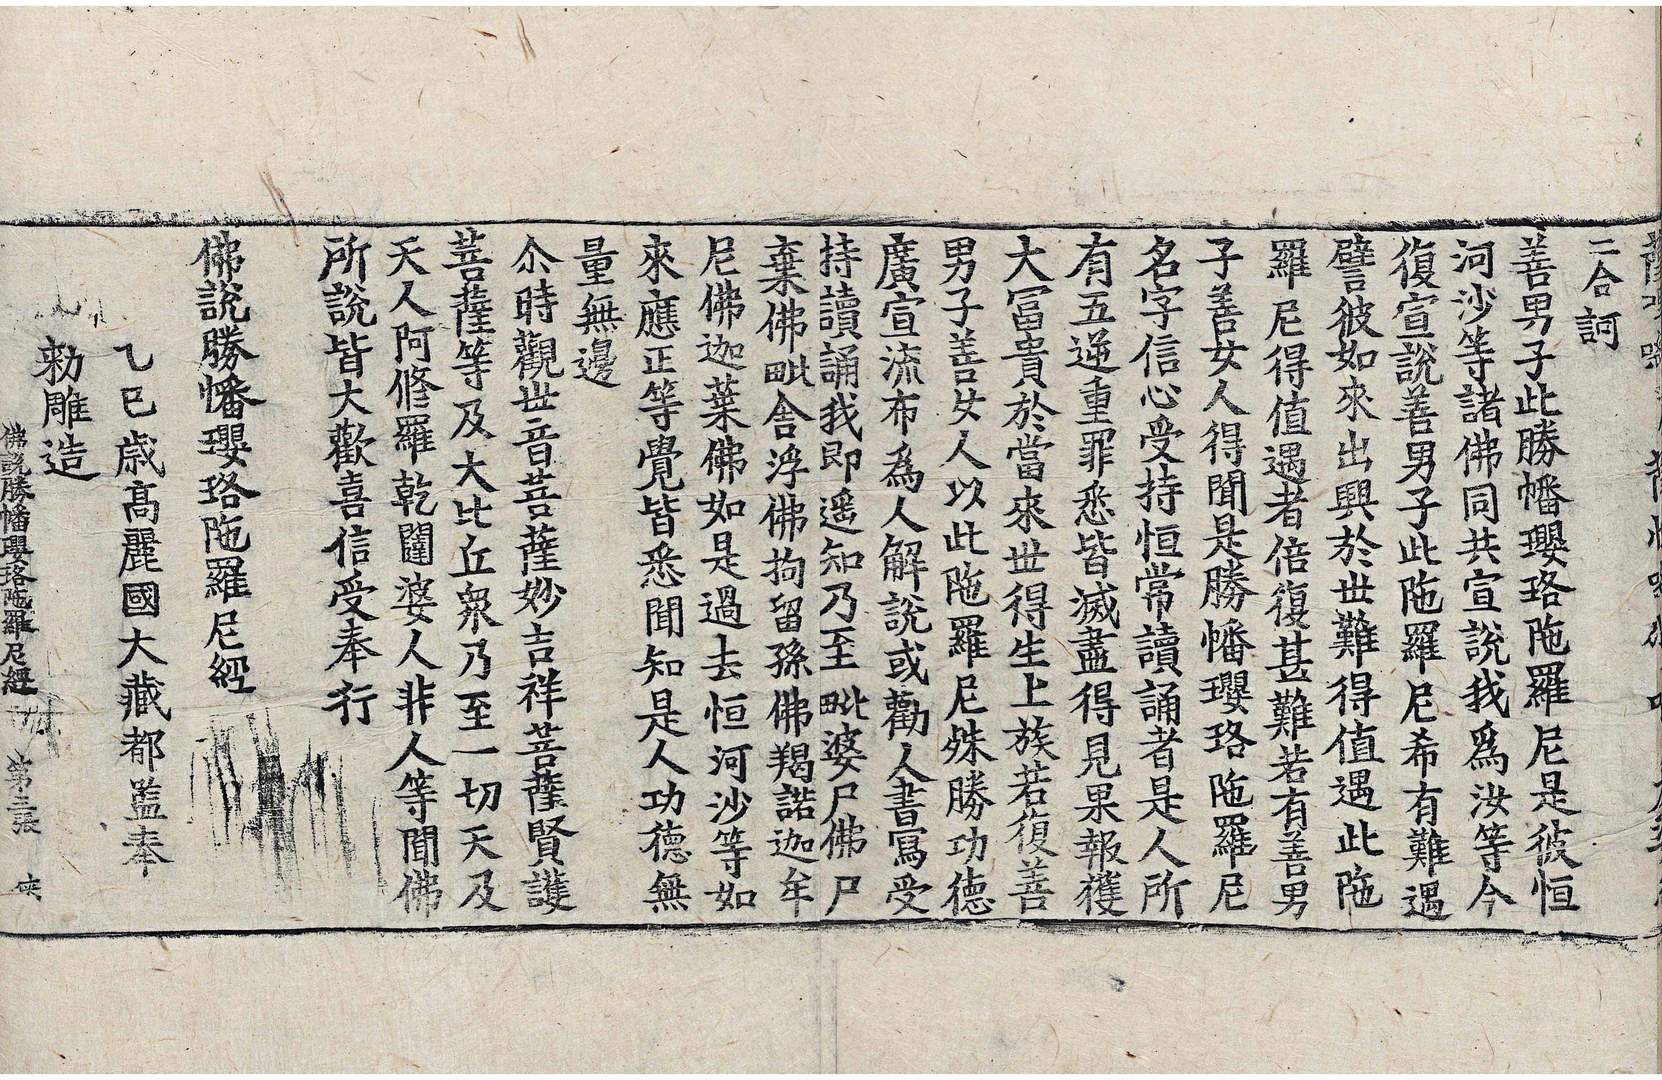 二合訶
善男子此勝幡瓔珞陁羅尼是彼恒
河沙等諸佛同共宣說我爲汝等今
復宣說善男子此陁羅尼希有難遇
譬彼如來出興於世難得值遇此陁
羅尼得值遇者倍復甚難若有善男
子善女人得聞是勝幡瓔珞陁羅尼
名字信心受持恒常讀誦者是人所
有五逆重罪悉皆滅盡得見果報獲
大冨貴於當來世得生上族若復善
男子善女人以此陁羅尼殊勝功德
廣宣流布爲人解說或勸人書寫受
持讀誦我即遥知乃至毗婆尸佛尸
棄佛毗舍浮佛拘留孫佛羯諾迦牟
尼佛迦葉佛如是過去恒河沙等如
來應正等覺皆悉聞知是人功德無
量無邊
尒時觀世音菩薩妙吉祥菩薩賢護
菩薩等及大比丘衆乃至一切天及
天人阿修羅乾闥婆人非人等聞佛
所說皆大歡喜信受奉行
佛說勝幡瓔珞陁羅尼經
乙巳歲高麗國大藏都監奉
勅雕造
佛說勝幡瓔珞陁羅尼經 第三張 俠